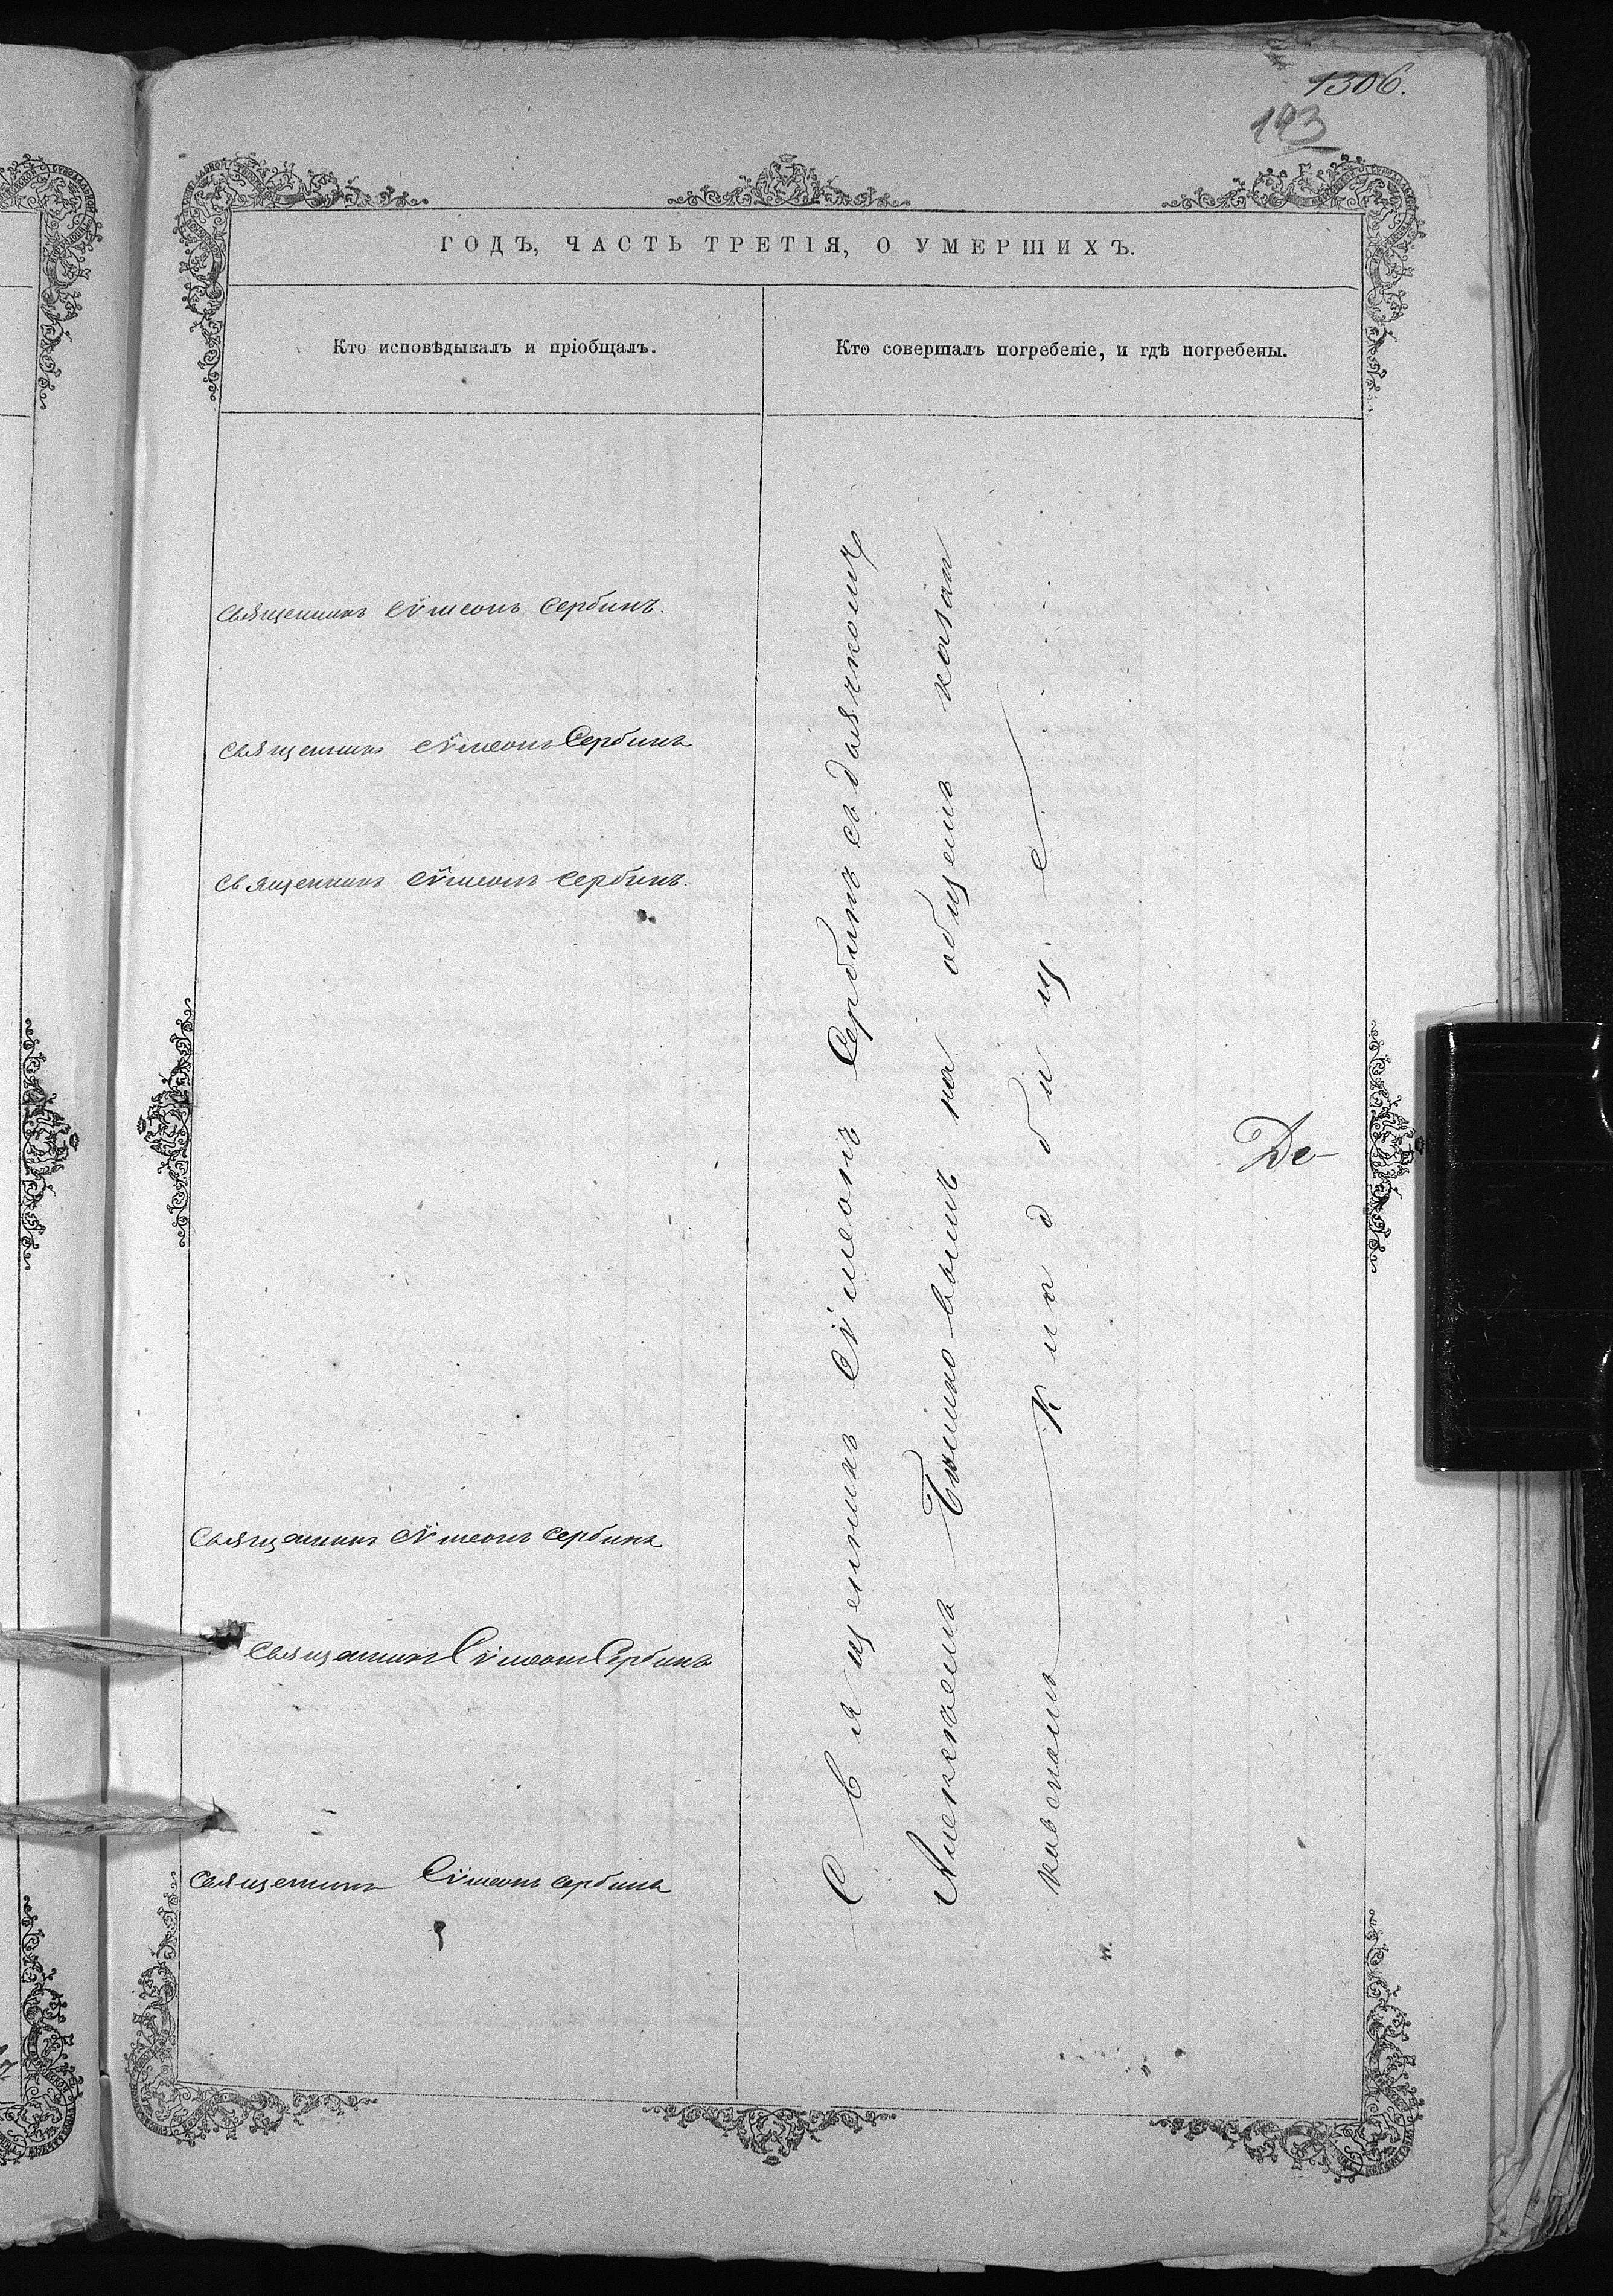 1306.
193
ГОДЪ, ЧАСТЬ ТРЕТІЯ, О УМЕРШИХЪ.
Кто исповѣдывалъ и пріобщалъ.
Кто совершалъ погребеніе, и гдѣ погребены.
Священникъ Сѵмеонъ Сербинъ.
Священникъ Сѵмеонъ Сербинъ
Священникъ Сѵмеонъ Сербинъ.
Священникъ Сѵмеонъ Сербинъ
Священникъ Сѵмеонъ Сербинъ
Священникъ Сѵмеонъ Сербинъ
Священникъ Сѵмеонъ Сербинъ съ дьячкомъ
Алексѣемъ на общемъ казан
ковскомъ кладбищѣ
De-